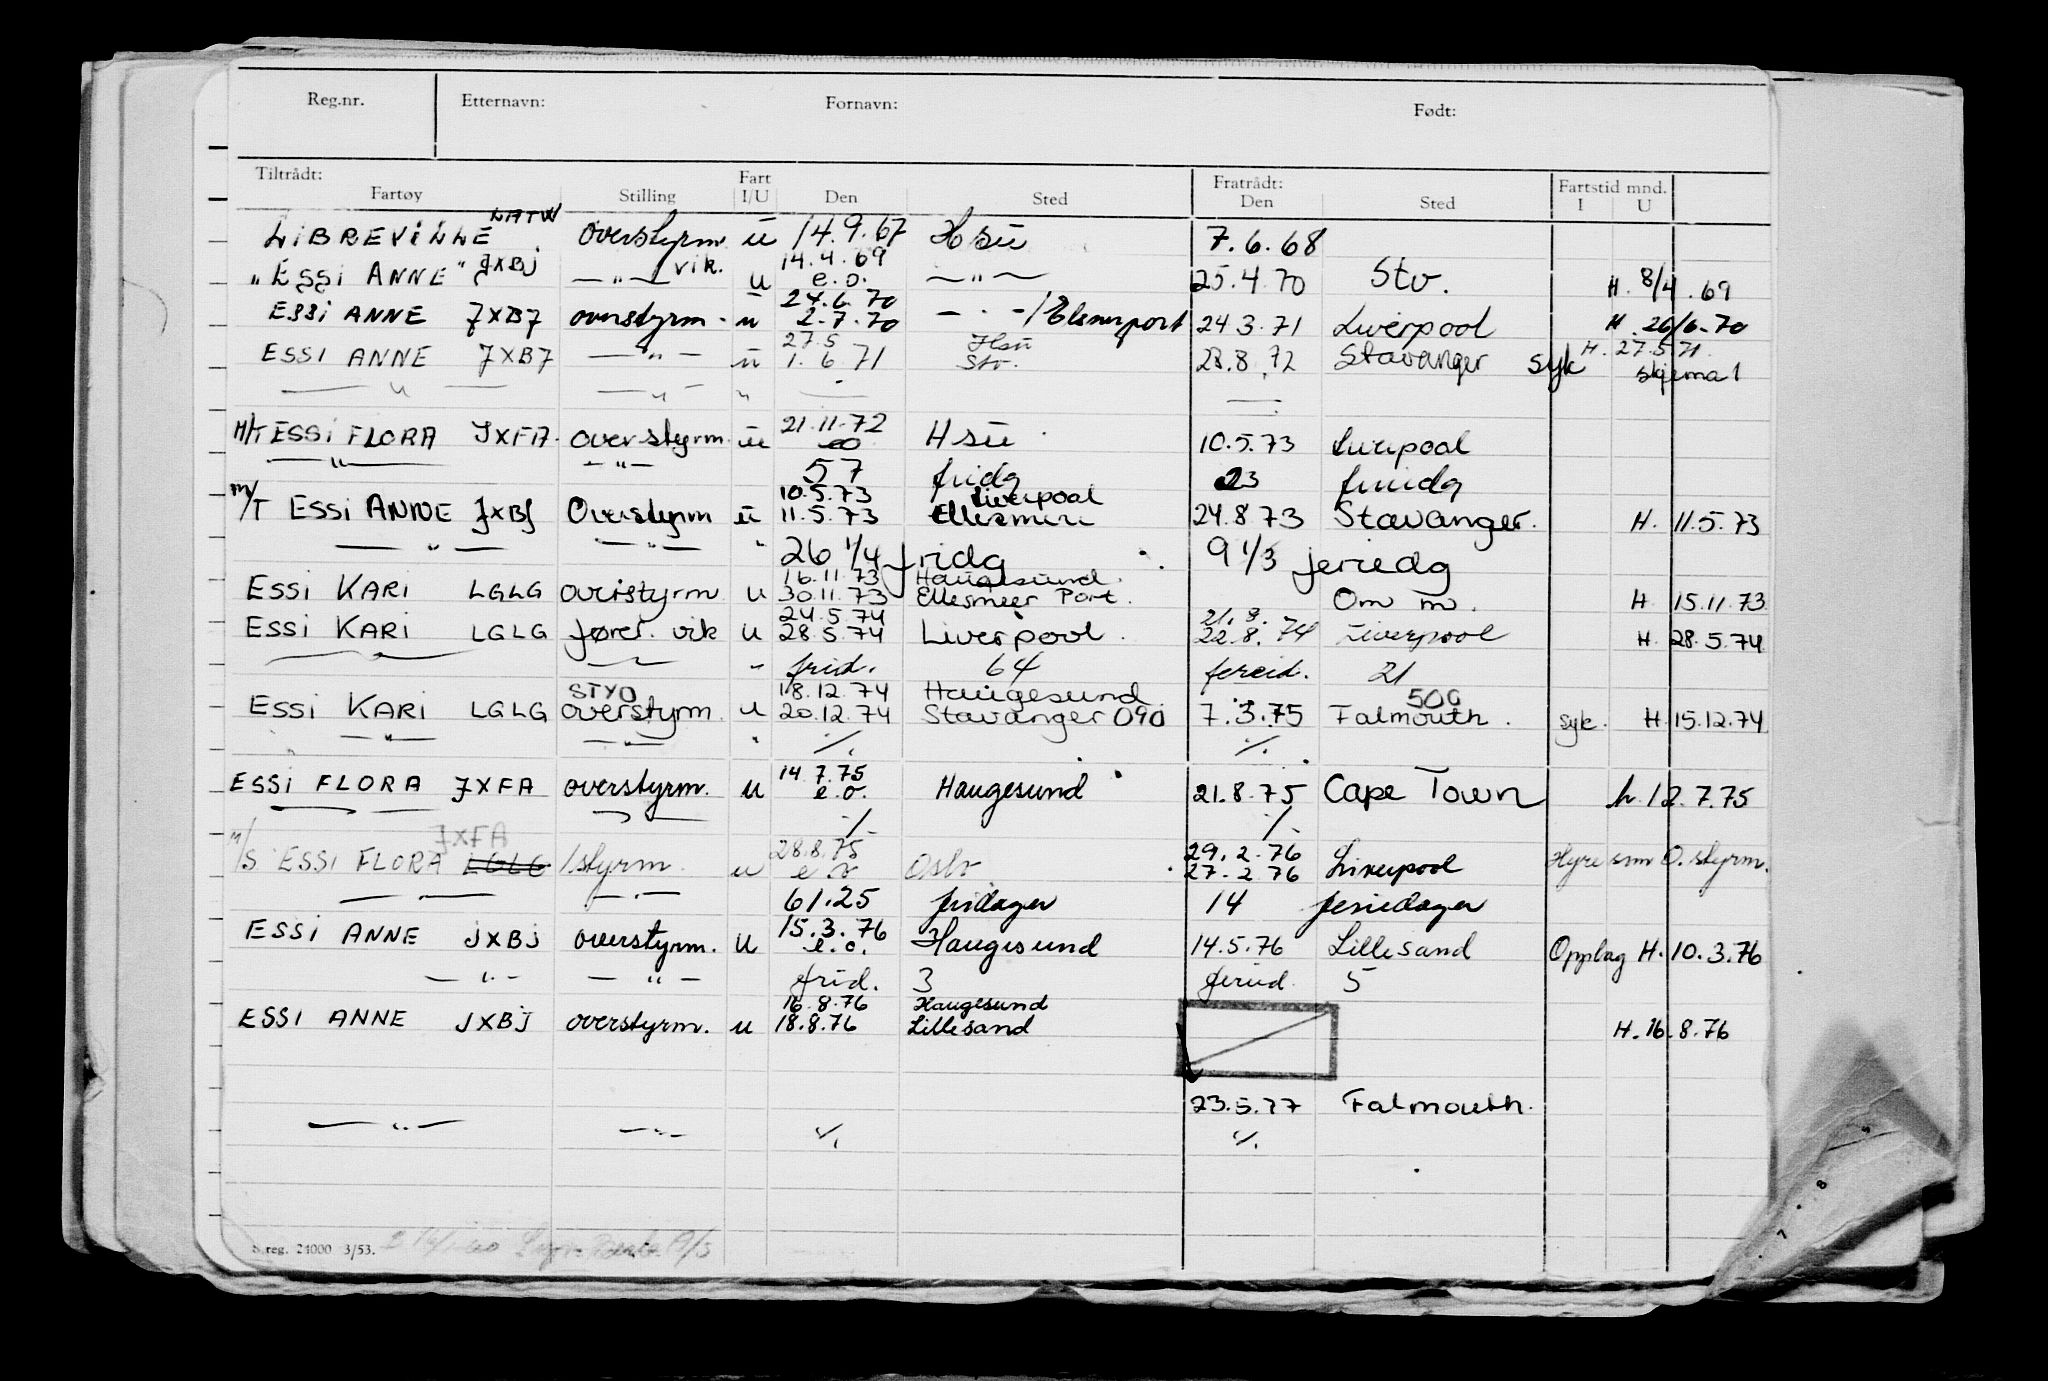 Reg.nr. Etternavn: Fornavn: Født:
Tiltrådt: Fartøy Stilling Fart I/U Den Sted Fratrådt: Den Sted Fartstid mnd. I U
LIBREVILLE LATW overstyrm. u 14.9.67 Hsu 7.6.68
"ESSI ANNE" JXBJ — " — vik. u 14.4.69 e.o. — " — 25.4.70 Stv. H. 8/4.69
ESSI ANNE JXBJ overstyrm. u 24.6.70 2.7.70 — " — / 24.3.71 Liverpool H. 26/6.70
ESSI ANNE JXBJ — " — u 27.5 1.6.71 Hsu Stv. 28.8.72 Stavanger syk H. 27.5.71 skjema 1
— " — — " — "
M/T ESSI FLORA JXFA. overstyrm. u 21.11.72 eo Hsu 10.5.73 Liverpool
— " — — " — 57 fridg 23 feriedg
M/T ESSI ANNE JXBJ Overstyrm u 10.5.73 11.5.73 Liverpool Ellesmere 24.8.73 Stavanger. H. 11.5.73
— " — — " — " 26 1/4 fridg 9 1/3 feriedg
ESSI KARI LGLG overstyrm u 16.11.73 30.11.73 Haugesund. Ellesmeer Port. Om m. H 15.11.73
ESSI KARI LGLG fører. vik u 24.5.74 28.5.74 Liverpool. 21.8. 22.8.74 Liverpool H 28.5.74
— " — — " — " frid. 64 fereid. 21
ESSI KARI LGLG STYO overstyrm. u 18.12.74 20.12.74 Haugesund Stavanger 090 7.3.75 500 Falmouth. syk. H. 15.12.74
— " — — " — " ./. ./.
ESSI FLORA JXFA overstyrm. u 14.7.75 e.o. Haugesund 21.8.75 Cape Town h. 12.7.75
— " — — " — ./. ./.
M/S ESSI FLORA LGLG JXFA 1styrm. u 28.8.75 e.o. Oslo 29.2.76 27.2.76 Liverpool Hyre som O.styrm.
— " — — " — 61.25 fridager 14 feriedager
ESSI ANNE JXBJ overstyrm. u 15.3.76 e.o. Haugesund 14.5.76 Lillesand Opplag H. 10.3.76
— " — — " — frid. 3 feried. 5
ESSI ANNE JXBJ overstyrm. u 16.8.76 18.8.76 Haugesund Lillesand H. 16.8.76
23.5.77 Falmouth.
— " — — " — ./. ./.
S.reg. 24000 3/53.